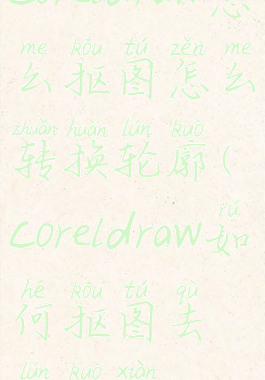 coreldraw怎
me kōu tú zěn me
么抠图怎么
zhuǎn huàn lún kuò
转换轮廓(
rú
coreldraw如
hé kōu tú qù
何抠图去
lún kuò xiàn